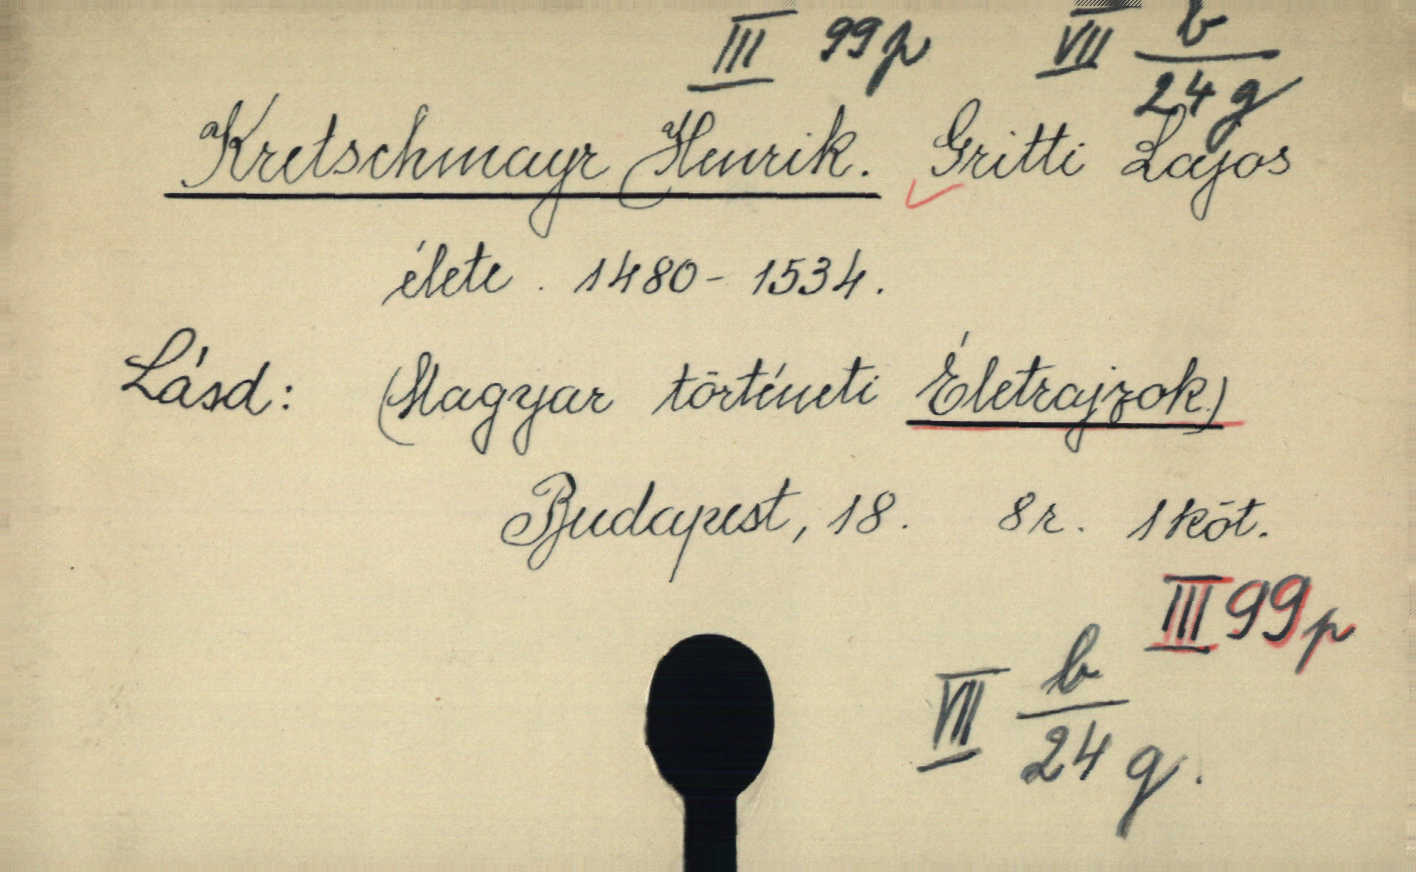 III 99p VII b/24 g
Kretschmayr Henrik. Gritti Lajos
élete. 1480-1534.
Lásd: (Magyar történeti Életrajzok.)
Budapest, 18. 8r. 1 köt.
III 99p
VII b/24 g.